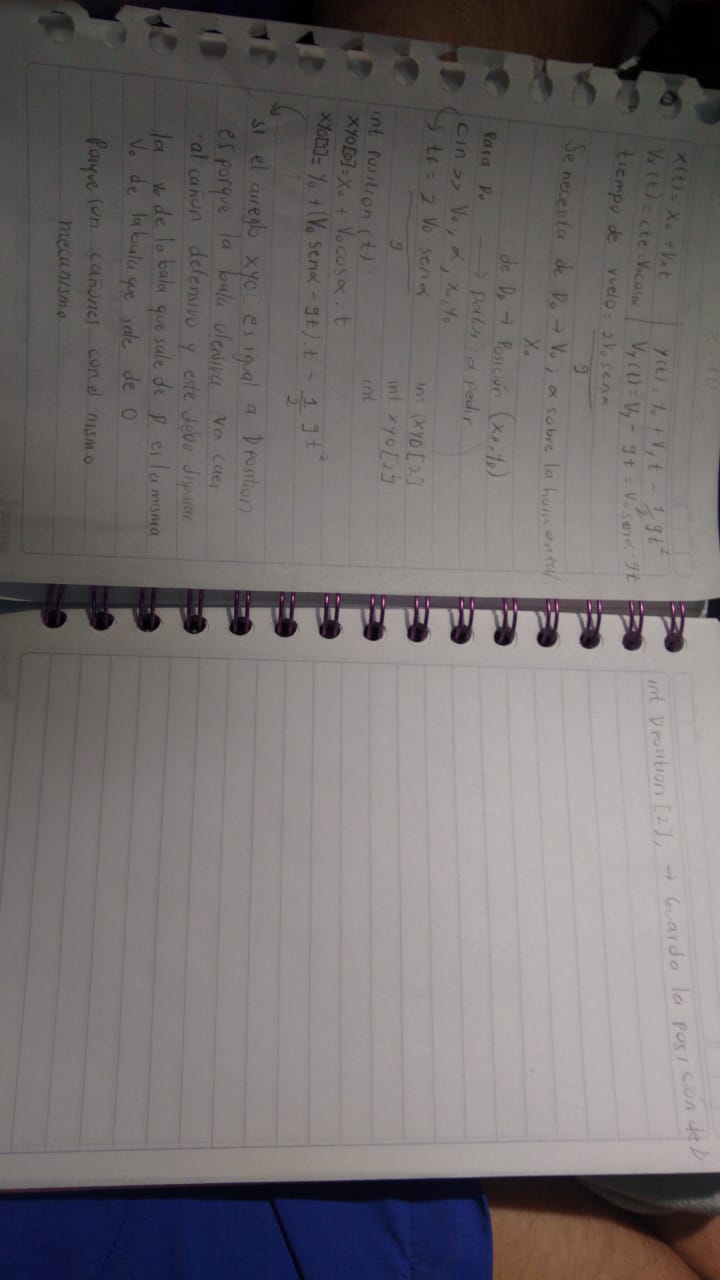 x(t) = x₀ + Vxt
y(t) = y₀ + Vyt - 1/2 gt²
Vx(t) = cte = V₀cosα
Vy(t) = Vy - gt = V₀senα gt
tiempo de vuelo = 2V₀senα / g
Se necesita de D₀ → V₀; α sobre la horizontal
X₀
de D₀ → Posición (x₀, y₀)
Para D₀ → para pedir
cin >> V₀, α, x₀, y₀
↳ tr = 2 V₀ senα / g
int (XYO[2]
int XYO[2]
int position(t)
int
XYO[0] = X₀ + V₀cosα . t
XYO[1] = Y₀ + (V₀ senα - gt) . t - 1/2 gt²
si el arreglo XYO es igual a Dposition
es porque la bala ofensiva va caer
al cañon defensivo y este debe disparar
la v₀ de la bala que sale de D es la misma
V₀ de la bala que sale de O
porque son cañones con el mismo
mecanismo
int Dposition [2]; → Guarda la posición de D